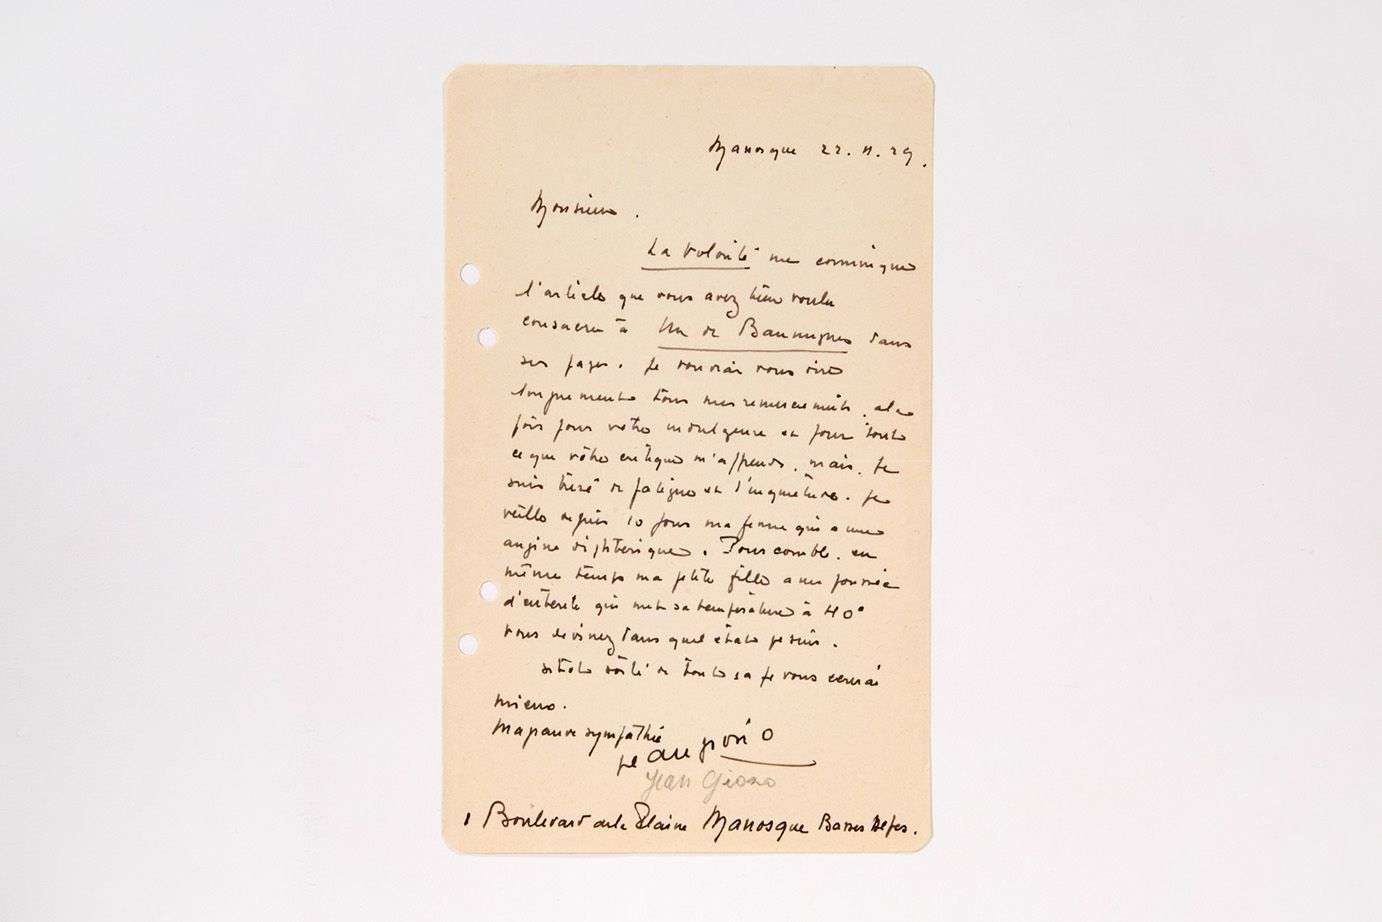 Manosque 22.11.29.
Monsieur.
La Volonté me communique
l'article que vous avez bien voulu
consacrer à Un de Baumugnes dans
ses pages. Je voudrais vous dire
longuement tous mes remerciements, a la
fois pour votre indulgence et pour toute
ce que votre critique m'apprends, mais, je
suis brisé de fatigue et d'inquiétude. Je
veille depuis 10 jours ma femme qui a une
angine diphterique. Pour comble, en
même temps ma petite fille a une poussée
d'entérite qui met sa température à 40°
Vous devinez dans quel état je suis.
Sitôt de tout ça je vous écrirai
mieux.
Ma pauvre sympathie
Jean Giono
Jean Giono
1 Boulevard de la Plaine Manosque Basses Alpes.